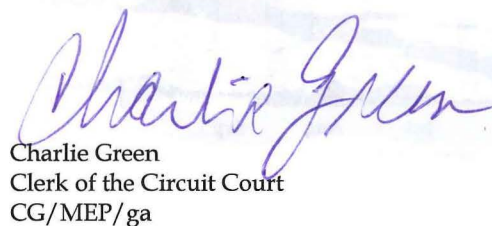 Charlie Green
Charlie Green
Clerk of the Circuit Court
CG/MEP/ga